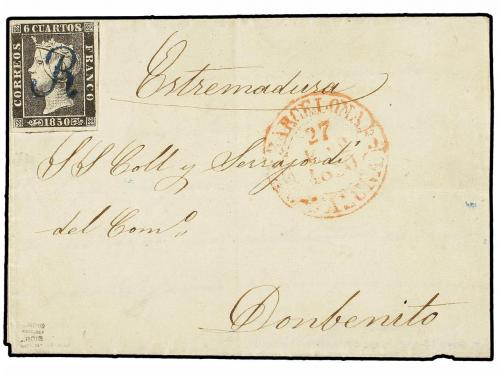 6 CUARTOS
CORREOS
FRANCO
1850
R
Estremadura
BARCELONA
27
1850
S S Coll y Serrajordi
del Com.º
Donbenito